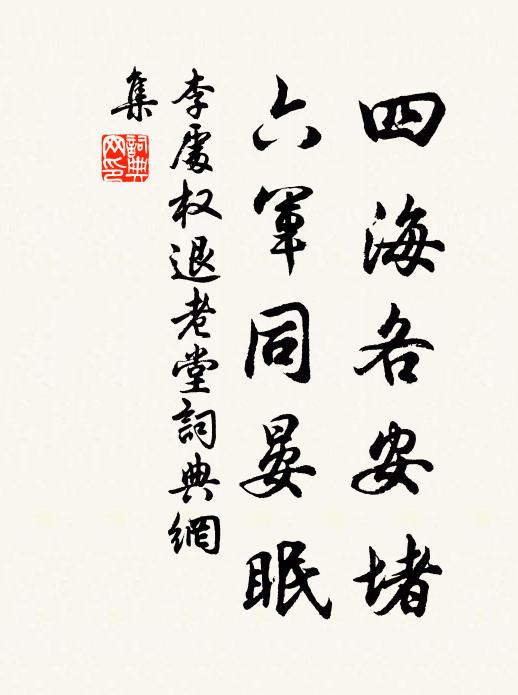 四海各安堵
六軍同晏眠
李處权退老堂詞典網
集
詞典網印